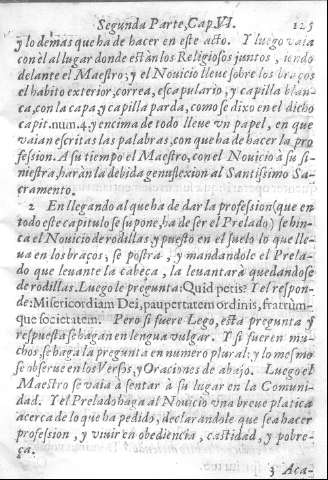 Segunda Parte, Cap. VI. 125
y lo demas que ha de hacer en este acto. Y luego vaia
con èl al lugar donde estàn los Religiosos juntos, iendo
delante el Maestro; y el Novicio lleve sobre los braços
el habito exterior, correa, escapulario, y capilla blan-
ca, con la capa y capilla parda, como se dixo en el dicho
capit. num. 4. y encima de todo lleve vn papel, en que
vaian escritas las palabras, con que ha de hacer la pro
fession. A su tiempo el Maestro, con el Novicio à su si-
niestra, haràn la debida genuflexion al Santissimo Sa-
cramento.
2 En llegando al que ha de dar la profession (que en
todo este capitulo se supone, ha de ser el Prelado) se hin-
ca el Novicio de rodillas, y puesto en el suelo lo que lle-
ua en los braços, se postra, y mandandole el Prela-
do que leuante la cabeça, la leuantarà quedandose
de rodillas. Luego le pregunta: Quid petis? I el respon-
de: Misericordiam Dei, paupertatem ordinis, fratrum-
que societatem. Pero si fuere Lego, esta pregunta y
respuesta se hagan en lengua vulgar. Y si fueren mu-
chos, se haga la pregunta en numero plural: y lo mesmo
se observe en los Versos, y Oraciones de abajo. Luego el
Maestro se vaia à sentar à su lugar en la Comuni-
dad. Y el Prelado haga al Novicio vna breve platica
acerca de lo que ha pedido, declarandole que sea hacer
profession, y vivir en obediencia, castidad, y pobre-
ça.
3 Aca-